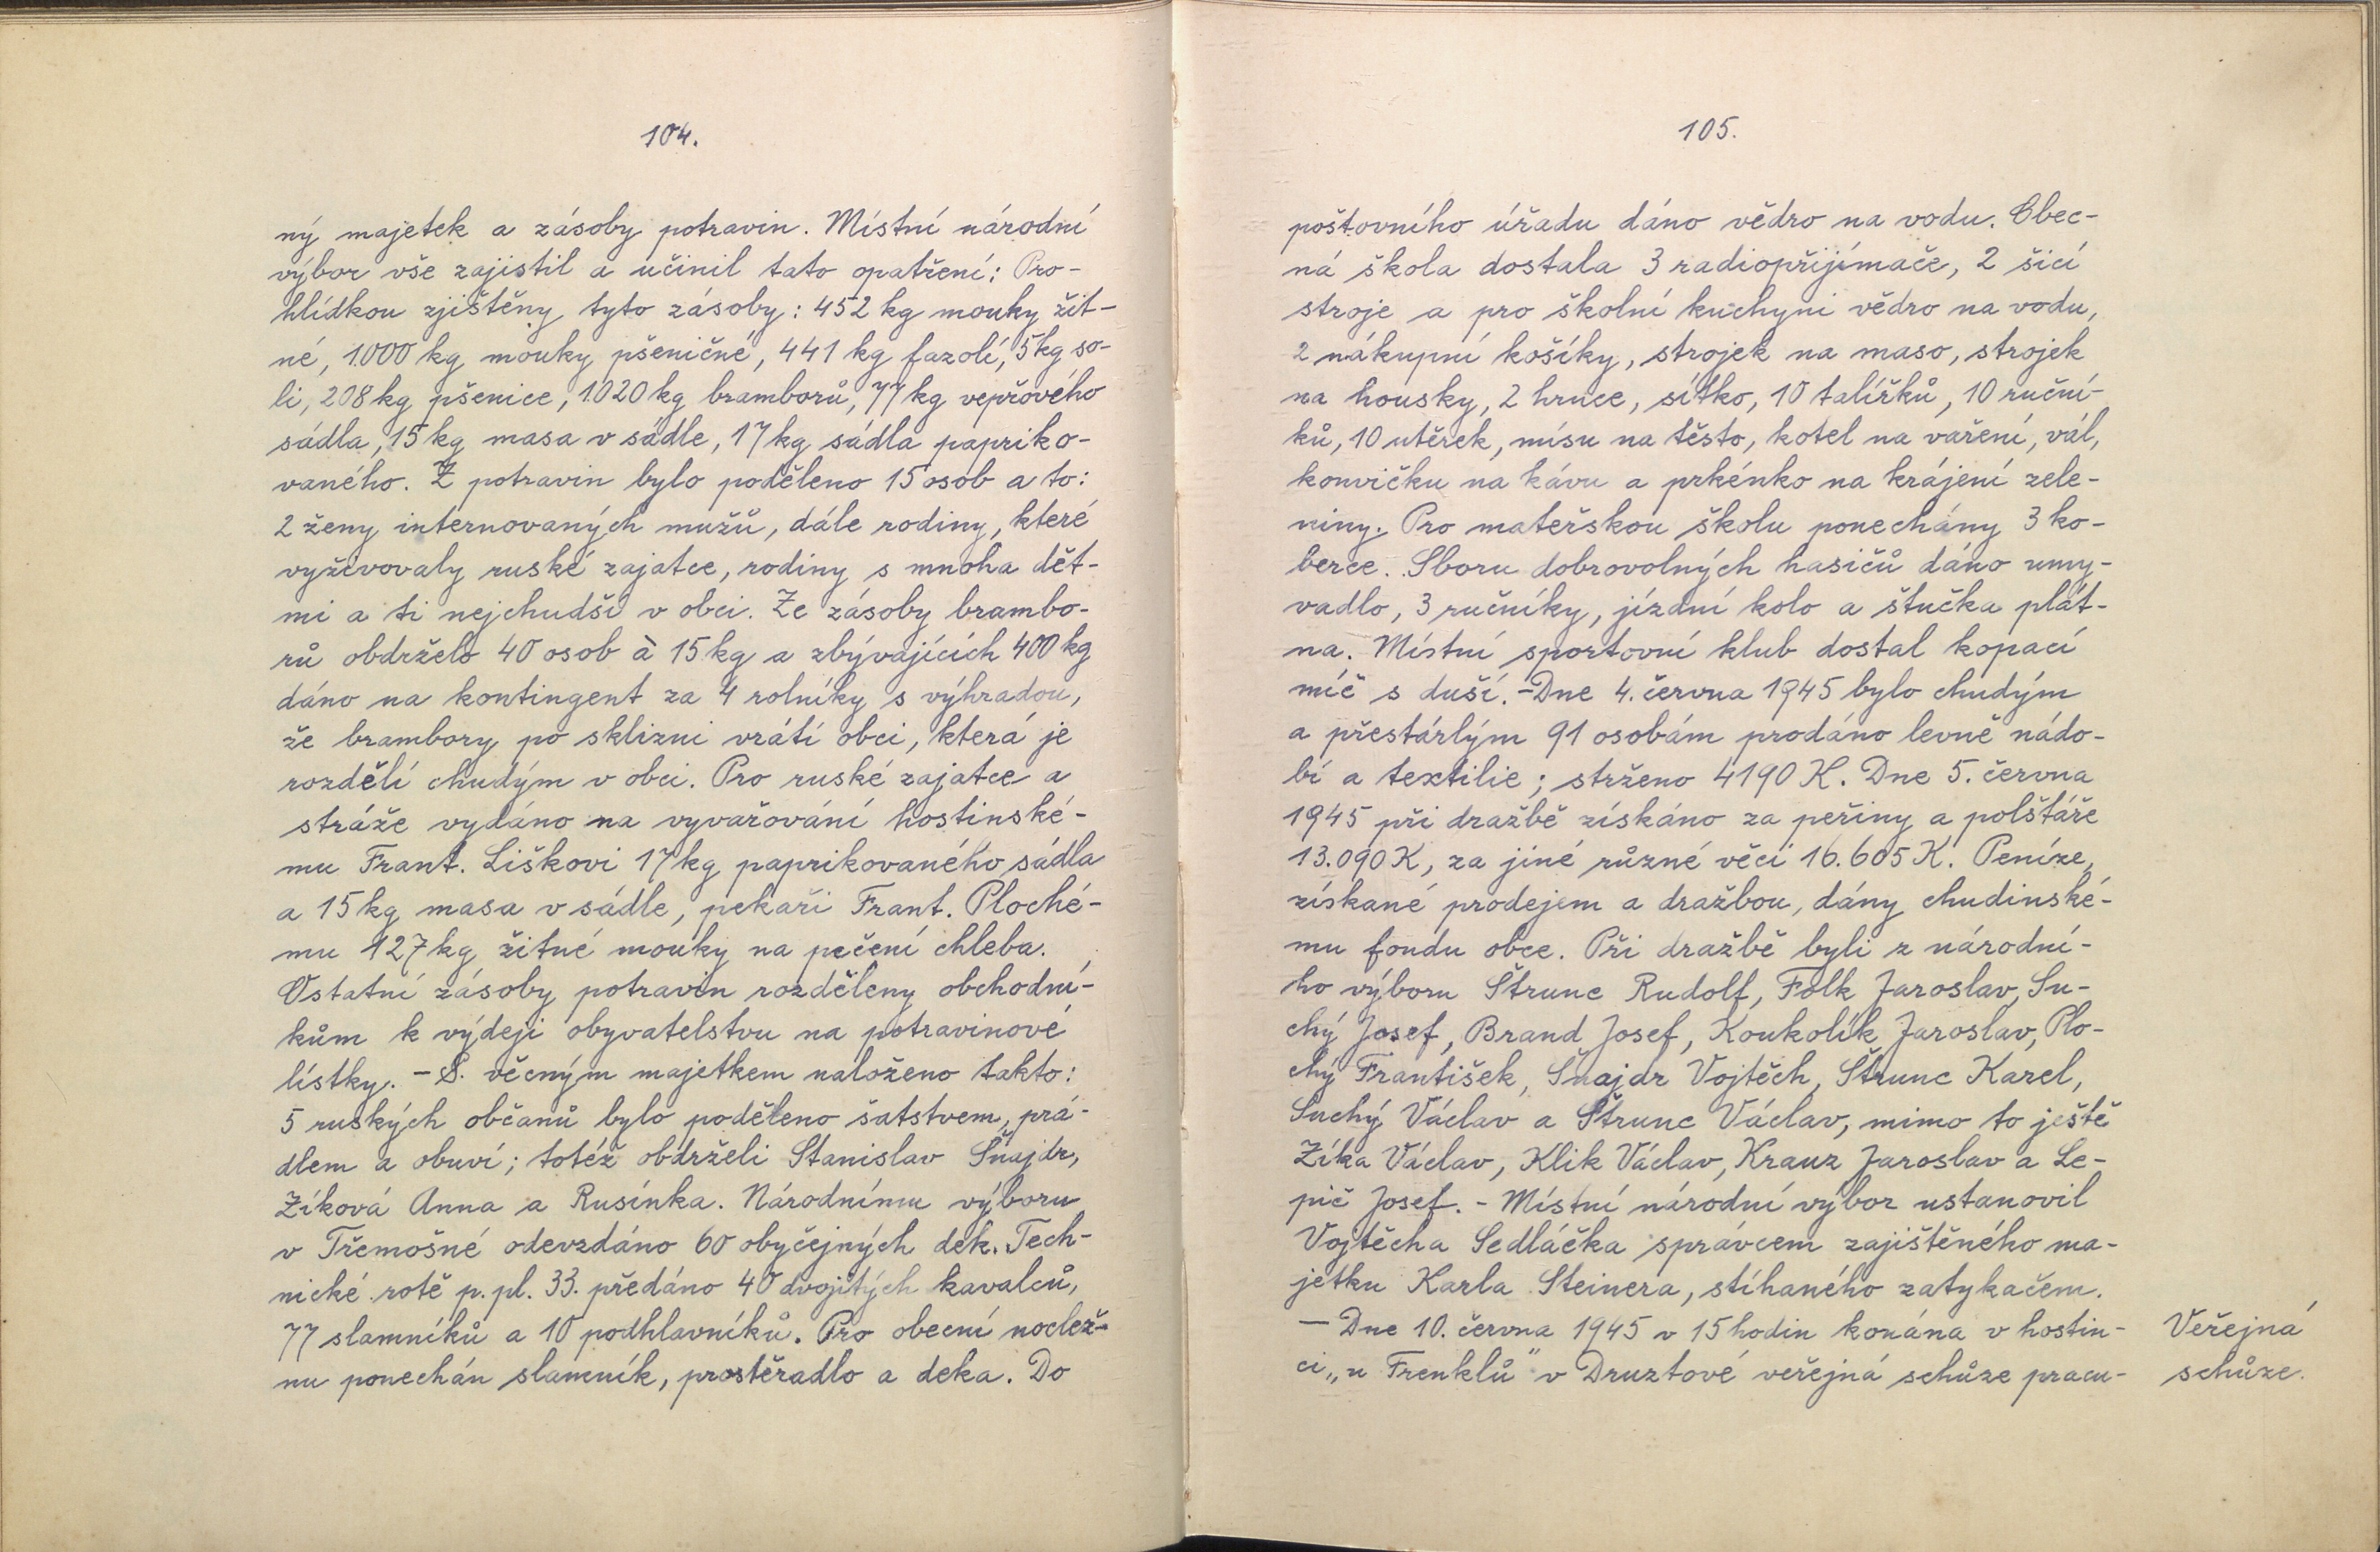 104.
ný majetek a zásoby potravin. Místní národní
výbor vše zajistil a učinil tato opatření: Pro-
hlídkou zjištěny tyto zásoby: 452 kg mouky žit-
né, 1.000 kg mouky pšeničné, 441 kg fazolí, 5 kg so-
li, 208 kg pšenice, 1.020 kg bramborů, 77 kg vepřového
sádla, 15 kg masa v sádle, 17 kg sádla papriko-
vaného. Z potravin bylo poděleno 15 osob a to:
2 ženy internovaných mužů, dále rodiny, které
vyživovaly ruské zajatce, rodiny s mnoha dět-
mi a ti nejchudší v obci. Ze zásoby brambo-
rů obdrželo 40 osob à 15 kg a zbývajících 400 kg
dáno na kontingent za 4 rolníky s výhradou,
že brambory po sklizni vrátí obci, která je
rozdělí chudým v obci. Pro ruské zajatce a
stráže vydáno na vyvařování hostinské-
mu Frant. Liškovi 17 kg paprikovaného sádla
a 15 kg masa v sádle, pekaři Frant. Ploché-
mu 127 kg žitné mouky na pečení chleba.
Ostatní zásoby potravin rozděleny obchodní-
kům k výdeji obyvatelstvu na potravinové
lístky. - S věcným majetkem naloženo takto:
5 ruských občanů bylo poděleno šatstvem, prá-
dlem a obuví; totéž obdrželi Stanislav Šnajdr,
Zíková Anna a Rusínka. Národnímu výboru
v Třemošné odevzdáno 60 obyčejných dek. Tech-
nické rotě p. pl. 33. předáno 40 dvojitých kavalců,
77 slamníků a 10 podhlavníků. Pro obecní noclež-
nu ponechán slamník, prostěradlo a deka. Do
105.
poštovního úřadu dáno vědro na vodu. Obec-
ná škola dostala 3 radiopřijímače, 2 šicí
stroje a pro školní kuchyni vědro na vodu,
2 nákupní košíky, strojek na maso, strojek
na housky, 2 hrnce, sítko, 10 talířků, 10 ruční-
ků, 10 utěrek, mísu na těsto, kotel na vaření, vál,
konvičku na kávu a prkénko na krájení zele-
niny. Pro mateřskou školu ponechány 3 ko-
berce. Sboru dobrovolných hasičů dáno umy-
vadlo, 3 ručníky, jízdní kolo a štučka plát-
na. Místní sportovní klub dostal kopací
míč s duší. - Dne 4. června 1945 bylo chudým
a přestárlým 91 osobám prodáno levně nádo-
bí a textilie; strženo 4190 K. Dne 5. června
1945 při dražbě získáno za peřiny a polštáře
13.090 K, za jiné různé věci 16.605 K. Peníze,
získané prodejem a dražbou, dány chudinské-
mu fondu obce. Při dražbě byli z národní-
ho výboru Štrunc Rudolf, Folk Jaroslav, Su-
chý Josef, Brand Josef, Koukolík Jaroslav, Plo-
chý František, Šnajdr Vojtěch, Štrunc Karel,
Suchý Václav a Štrunc Václav, mimo to ještě
Zíka Václav, Klik Václav, Krauz Jaroslav a Le-
pič Josef. - Místní národní výbor ustanovil
Vojtěcha Sedláčka správcem zajištěného ma-
jetku Karla Steinera, stíhaného zatykačem.
- Dne 10. června 1945 v 15 hodin konána v hostin-
ci „u Frenklů" v Druztové veřejná schůze pracu-
Veřejná
schůze.